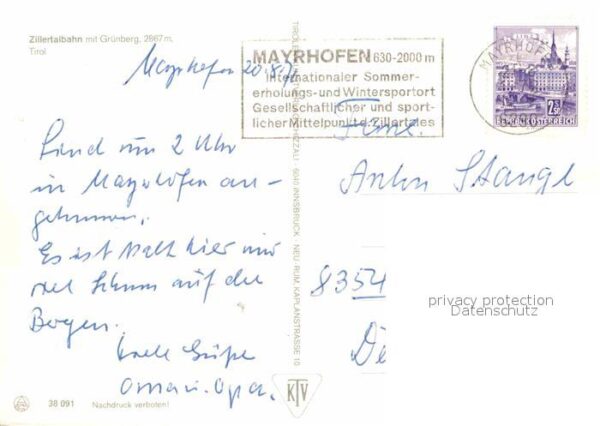 Zillertalbahn mit Grünberg, 2867 m,
Tirol
Mayrhofen 20.8.
Sind um 2 Uhr
in Mayrhofen an-
gekommen.
Es ist kalt hier und
viel Schnee auf den
Bergen.
Viele Grüße
Oma u. Opa.
38 091 Nachdruck verboten!
KTV
6040 INNSBRUCK - NEU-RUM, KAPLANSTRASSE 10
MAYRHOFEN 630-2000 m
Internationaler Sommer-
erholungs- und Wintersportort
Gesellschaftlicher und sport-
licher Mittelpunkt d. Zillertales
MAYRHOF
REPUBLIK ÖSTERREICH
Anton Stangl
8354
privacy protection
Datenschutz